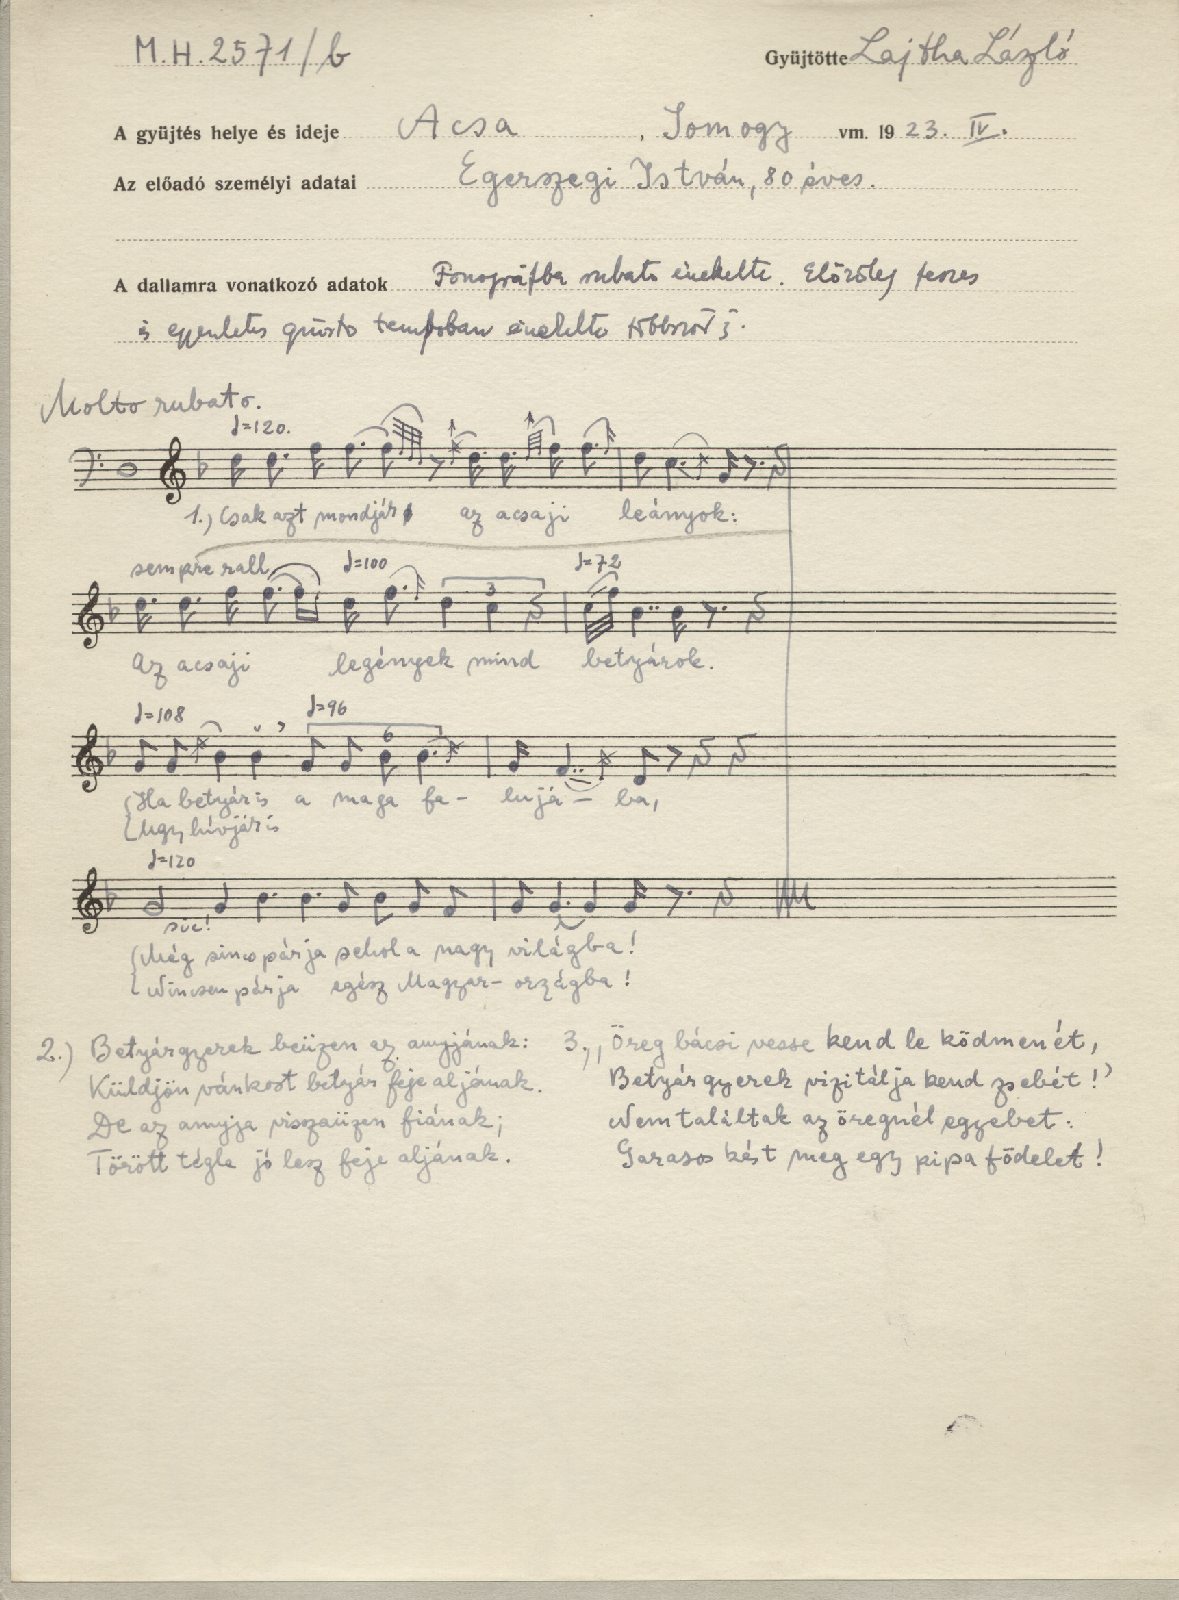 M.H. 2571/b
Gyüjtötte Lajtha László
A gyüjtés helye és ideje Acsa, Somogy vm. 1923. IV.
Az előadó személyi adatai Egerszegi István, 80 éves.
A dallamra vonatkozó adatok Fonográfba rubato énekelte. Előzőleg feszes
és egyenletes giusto tempoban énekelte többször is.
Molto rubato.
♩=120.
1.) Csak azt mondják az acsaji leányok:
sempre rall. ♩=100 3 ♩=72
Az acsaji legények mind betyárok.
♩=108 ♩=96
6
Ha betyár is a maga fa- lujá- ba,
Ugy hívják is
♩=120
sic!
Még sincs párja sehol a nagy világba!
Nincsen párja egész Magyar- országba!
2.) Betyárgyerek beüzen az anyjának:
Küldjön vánkost betyár feje aljának.
De az anyja visszaüzen fiának;
Törött tégla jó lesz feje aljának.
3.) Öreg bácsi vesse kend le ködmenét,
Betyárgyerek vizitálja kend zsebét!
Nem találtak az öregnél egyebet:
Garasos kést meg egy pipa födelet!